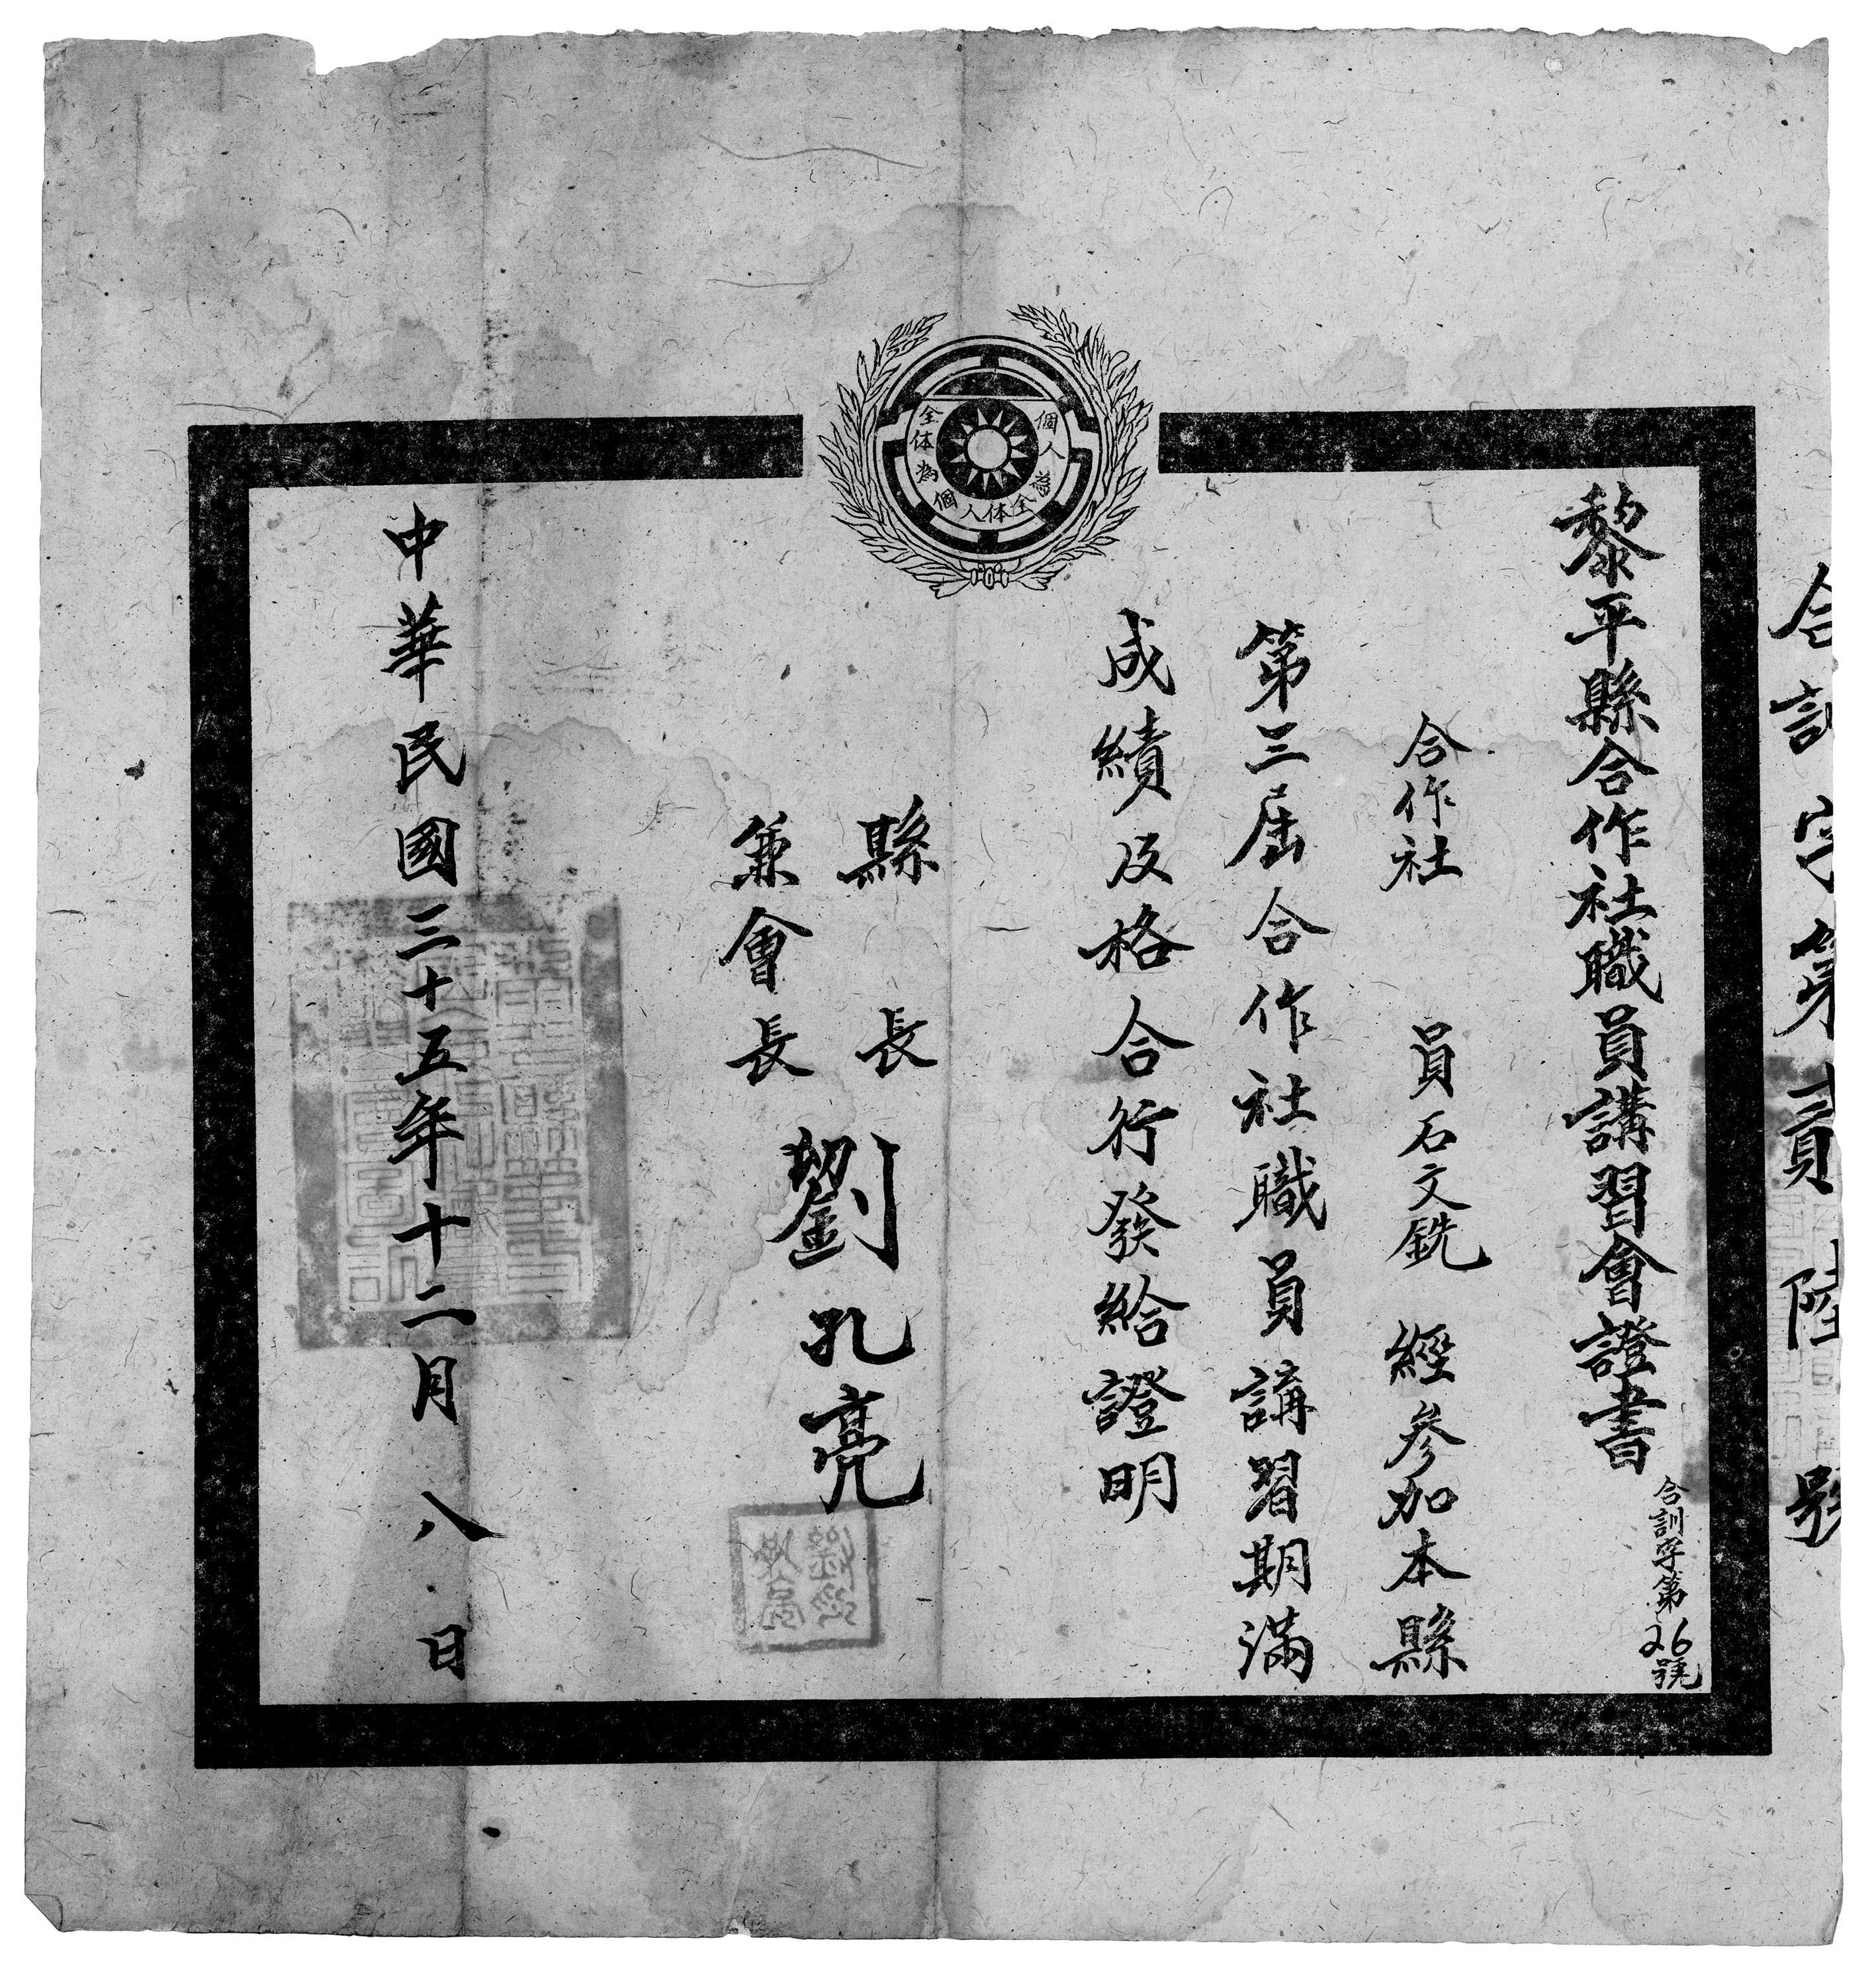 合訓字第貳陸號
黎平縣合作社職員講習會證書
合訓字第26號
合作社　員石文銑　經參加本縣
第三屆合作社職員講習期滿
成績及格合行發給證明
縣長
兼會長
劉孔亮
中華民國三十五年十二月八日
個人為全体
全体為個人